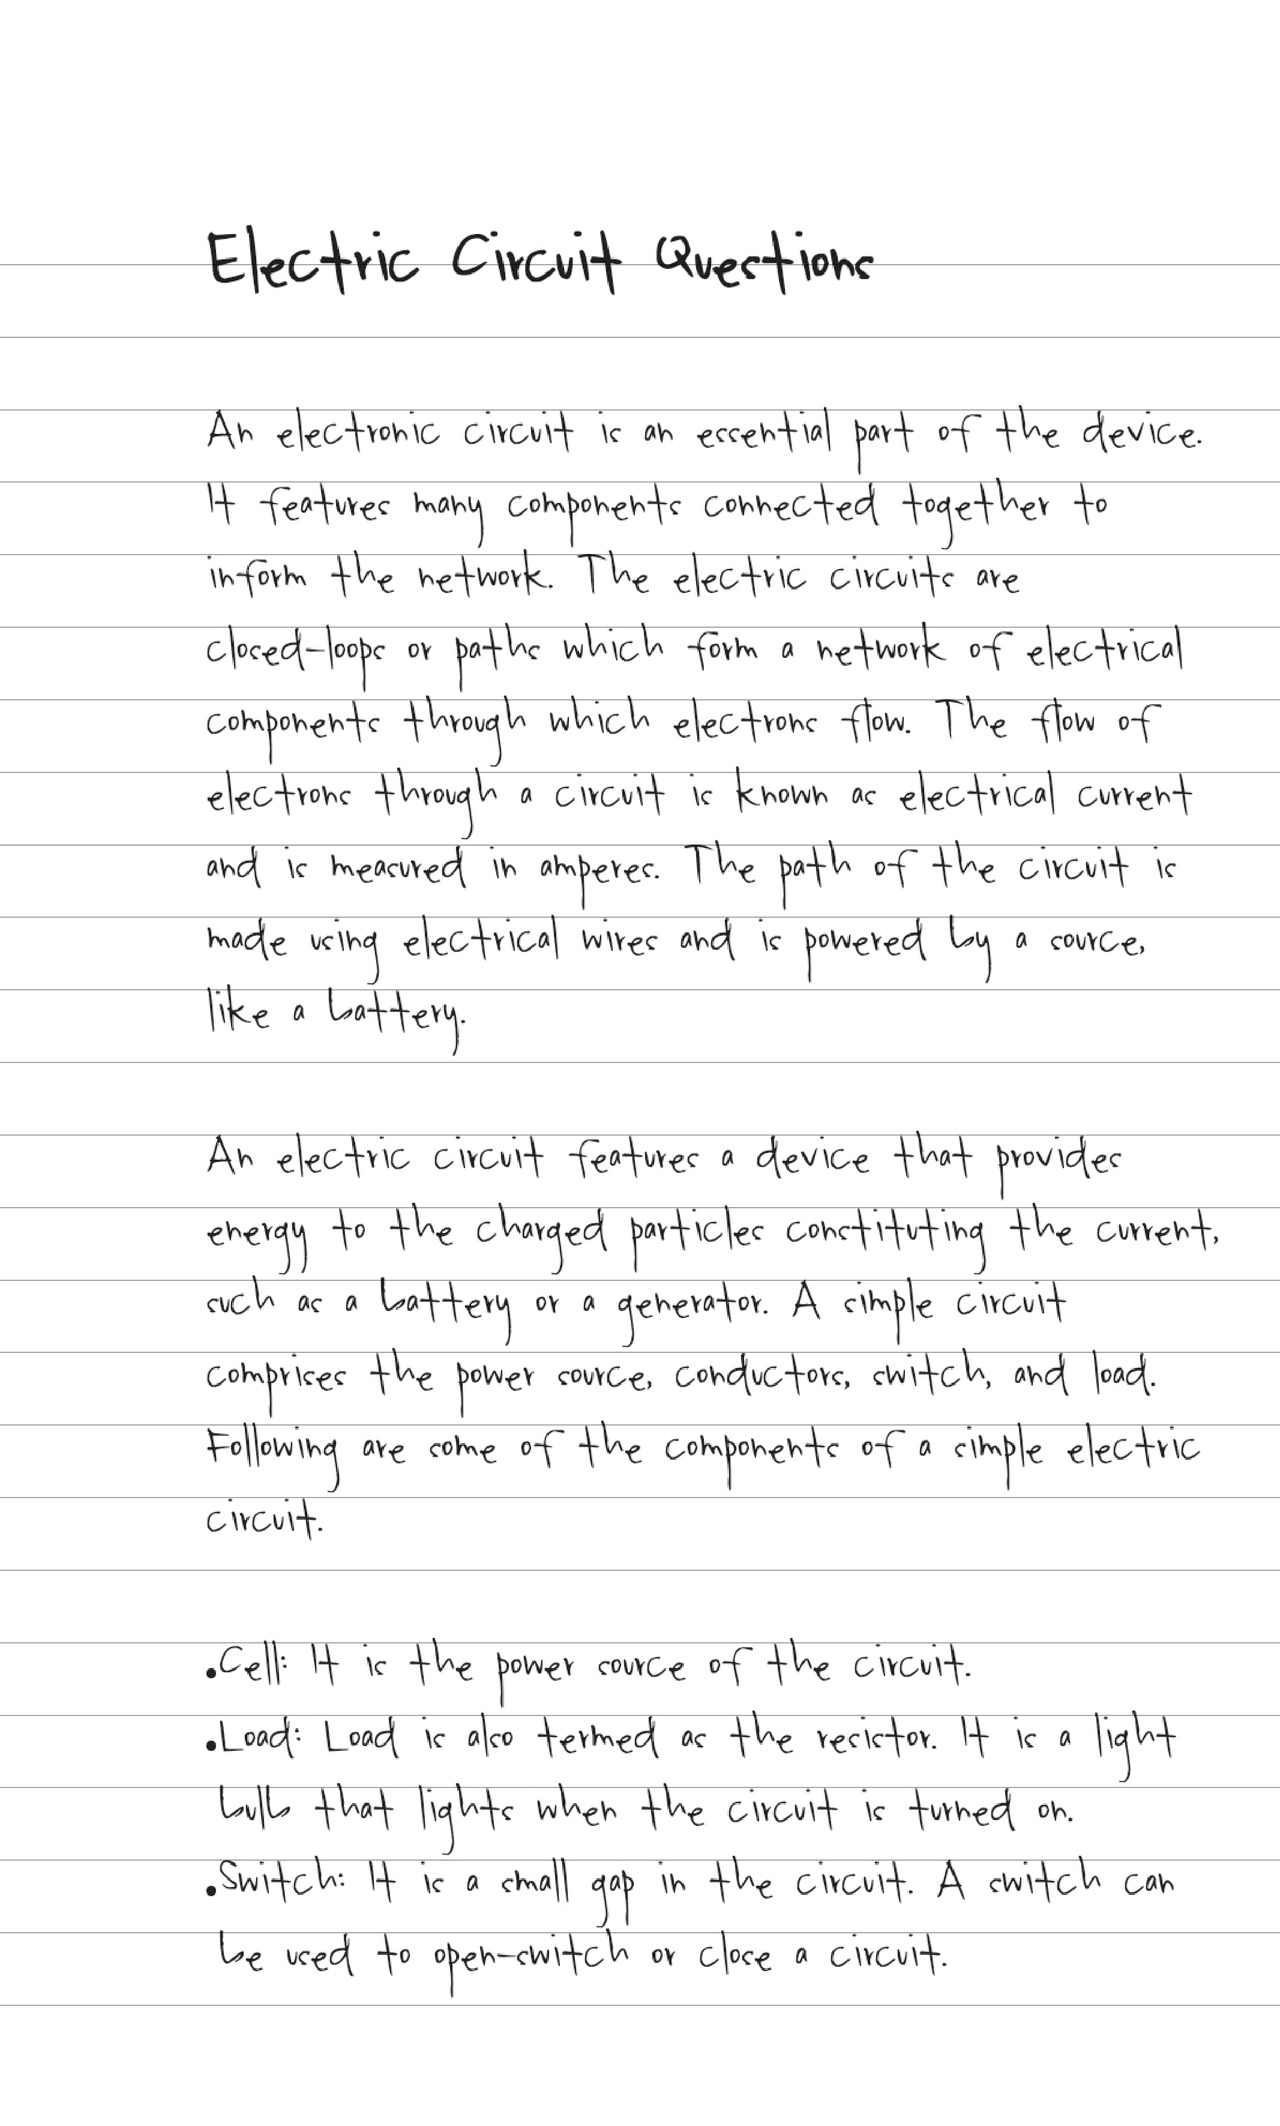 Electric Circuit Questions
An electronic circuit is an essential part of the device.
It features many components connected together to
inform the network. The electric circuits are
closed-loops or paths which form a network of electrical
components through which electrons flow. The flow of
electrons through a circuit is known as electrical current
and is measured in amperes. The path of the circuit is
made using electrical wires and is powered by a source,
like a battery.
An electric circuit features a device that provides
energy to the charged particles constituting the current,
such as a battery or a generator. A simple circuit
comprises the power source, conductors, switch, and load.
Following are some of the components of a simple electric
circuit.
•Cell: It is the power source of the circuit.
•Load: Load is also termed as the resistor. It is a light
bulb that lights when the circuit is turned on.
•Switch: It is a small gap in the circuit. A switch can
be used to open-switch or close a circuit.